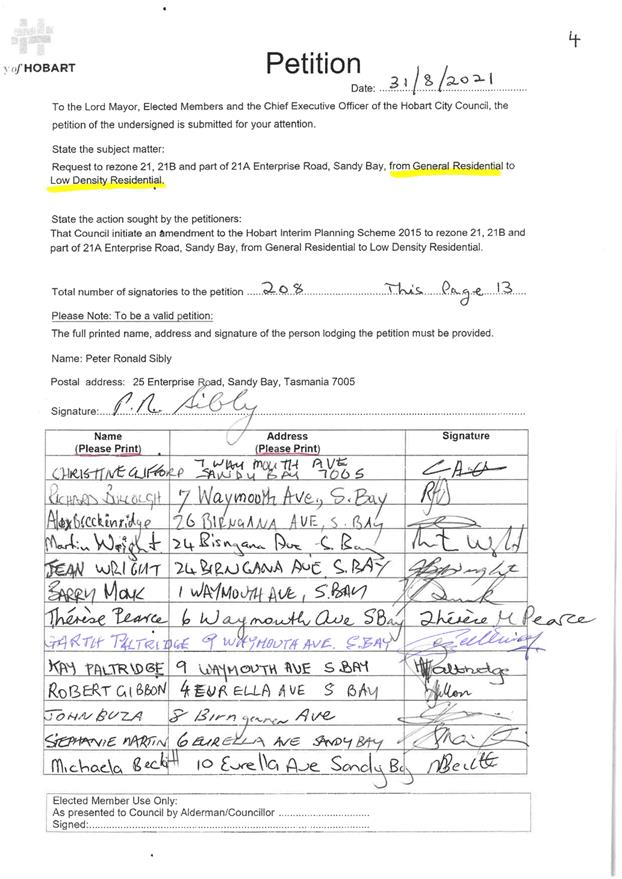 4
y of HOBART
Petition
Date: 31/8/2021
To the Lord Mayor, Elected Members and the Chief Executive Officer of the Hobart City Council, the
petition of the undersigned is submitted for your attention.
State the subject matter:
Request to rezone 21, 21B and part of 21A Enterprise Road, Sandy Bay, from General Residential to
Low Density Residential.
State the action sought by the petitioners:
That Council initiate an amendment to the Hobart Interim Planning Scheme 2015 to rezone 21, 21B and
part of 21A Enterprise Road, Sandy Bay, from General Residential to Low Density Residential.
Total number of signatories to the petition 208 This Page 13
Please Note: To be a valid petition:
The full printed name, address and signature of the person lodging the petition must be provided.
Name: Peter Ronald Sibly
Postal address: 25 Enterprise Road, Sandy Bay, Tasmania 7005
Signature: P. R. Sibly
Name Address Signature
(Please Print) (Please Print)
CHRISTINE GIFFORD 7 WAYMOUTH AVE SANDY BAY 7005
RICHARD 7 Waymouth Ave, S. Bay
Alex Breckinridge 26 BIRNGANA AVE, S. BAY
Martin Wright 24 Birngana Ave S. Bay
JEAN WRIGHT 24 BIRNGANA AVE S. BAY
BARRY MONK 1 WAYMOUTH AVE, S.BAY
Thérèse Pearce 6 Waymouth Ave S Bay Thérèse M Pearce
GARTH PALTRIDGE 9 WAYMOUTH AVE. S.BAY
KAY PALTRIDGE 9 WAYMOUTH AVE S BAY
ROBERT GIBBON 4 EURELLA AVE S BAY
JOHN BUZA 8 Birngana Ave
STEPHANIE MARTIN 6 EURELLA AVE SANDY BAY
Michaela Beckett 10 Eurella Ave Sandy Bay
Elected Member Use Only:
As presented to Council by Alderman/Councillor
Signed: